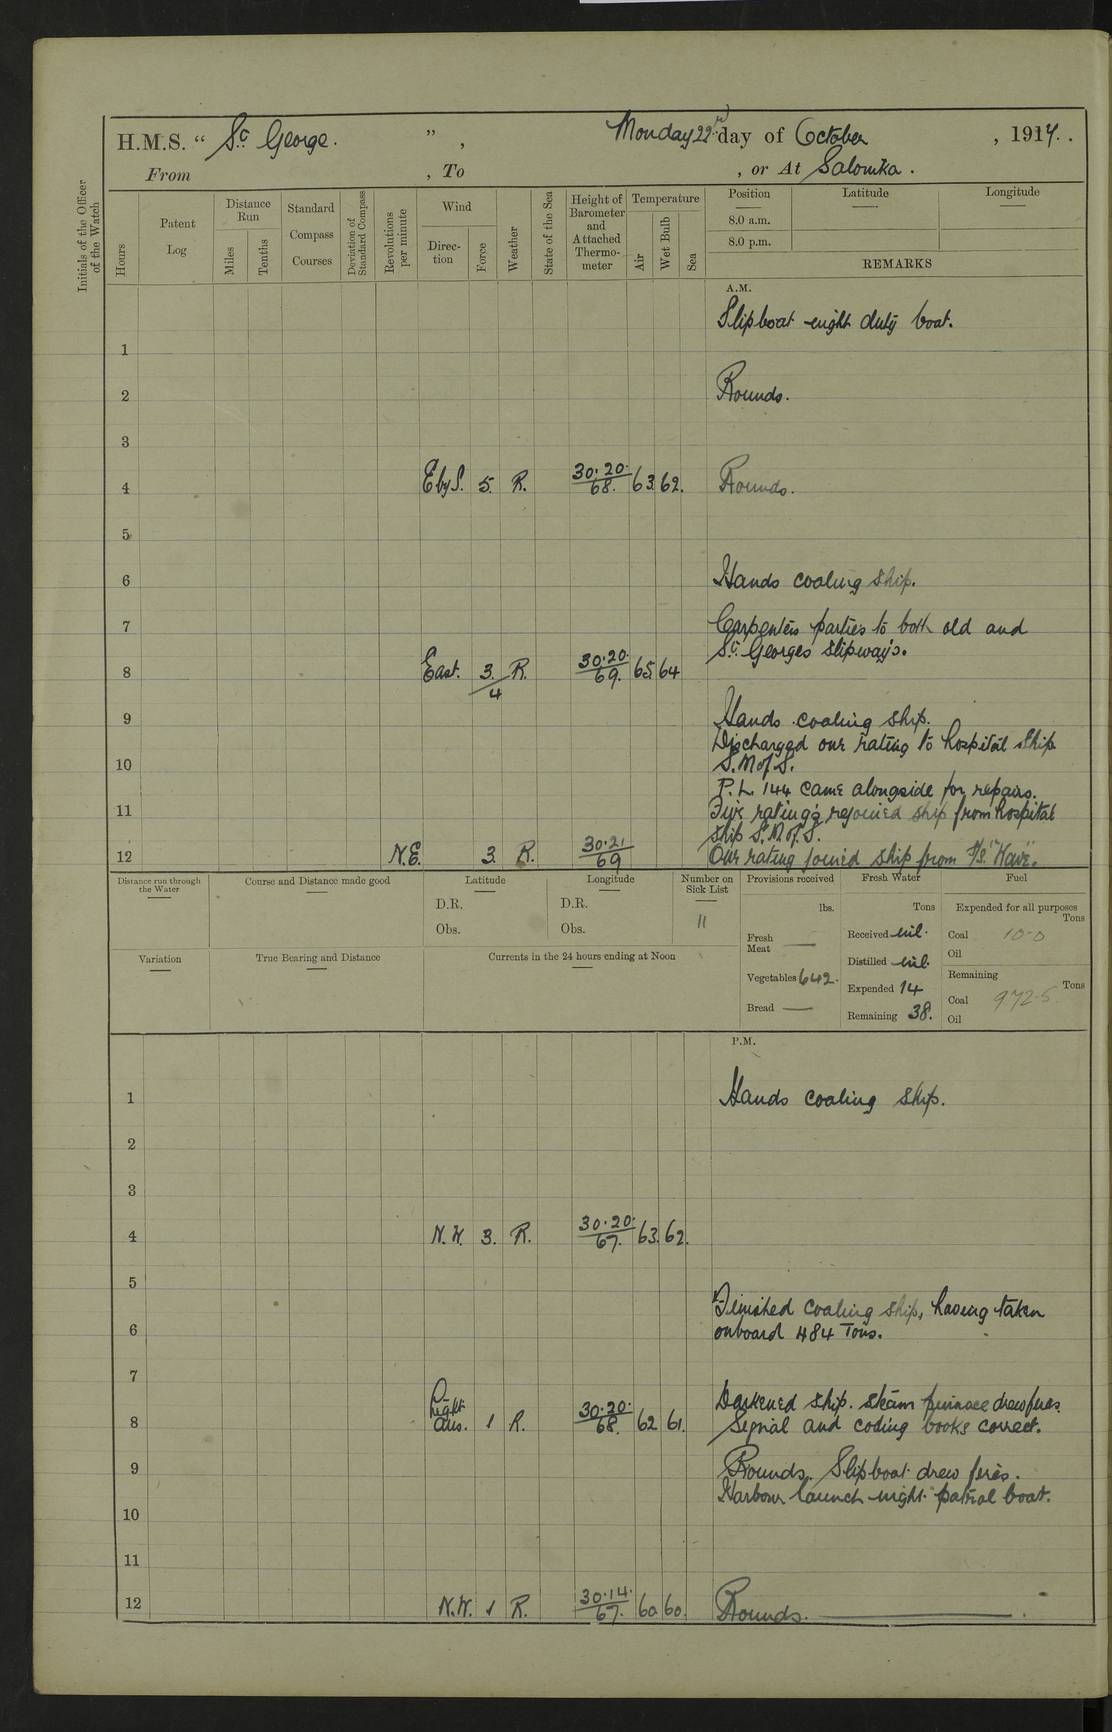 H.M.S. “ St George. ”, Monday 22nd day of October, 1917.
From , To , or At Salonika.
Initials of the Officer of the Watch
Hours
Patent Log
Distance Run
Miles
Tenths
Standard Compass Courses
Deviation of Standard Compass
Revolutions per minute
Wind
Direction
Force
Weather
State of the Sea
Height of Barometer and Attached Thermometer
Temperature
Air
Wet Bulb
Sea
Position Latitude Longitude
8.0 a.m.
8.0 p.m.
REMARKS
A.M.
Slipboat night duty boat.
1
2 Rounds.
3
4 E by S. 5. R. 30.20. 68. 63. 62. Rounds.
5
6 Hands coaling ship.
7 Carpenters parties to both old and
St. Georges slipways.
8 East. 3/4 R. 30.20. 69. 65. 64
9 Hands coaling ship.
Discharged one rating to hospital ship
10 S.M of S.
P.L. 144 came alongside for repairs.
11 Five ratings rejoined ship from hospital
ship S.M. of S.
12 N.E. 3. R. 30.21 69 One rating joined ship from
Distance run through the Water
Course and Distance made good
Latitude
D.R.
Obs.
Longitude
D.R.
Obs.
Number on Sick List
11
Provisions received
lbs.
Fresh Meat —
Vegetables 642.
Bread —
Fresh Water
Tons
Received nil.
Distilled nil.
Expended 14
Remaining 38.
Fuel
Expended for all purposes
Tons
Coal 10-0
Oil
Remaining
Tons
Coal 972-5.
Oil
Variation
True Bearing and Distance
Currents in the 24 hours ending at Noon
P.M.
1 Hands coaling ship.
2
3
4 N.W. 3. R. 30.20. 67. 63. 62.
5
Finished coaling ship, having taken
6 onboard 484 Tons.
7
Darkened ship. Steam pinnace drew fires.
8 Light airs. 1 R. 30.20. 68. 62 61. Signal and coding books correct.
9 Rounds. Slipboat drew fires.
Harbour launch night patrol boat.
10
11
12 N.W. 1 R. 30.14. 67. 60. 60. Rounds.